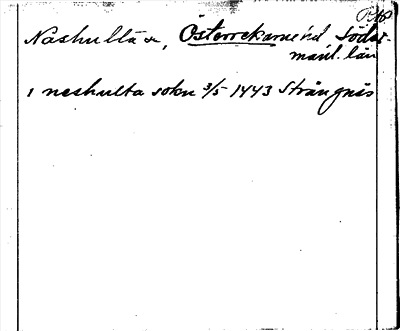 Näshulta sn, Österrekarne hd Söder-
manl. län
i neshulta sokn 3/5 1443 Strängnäs